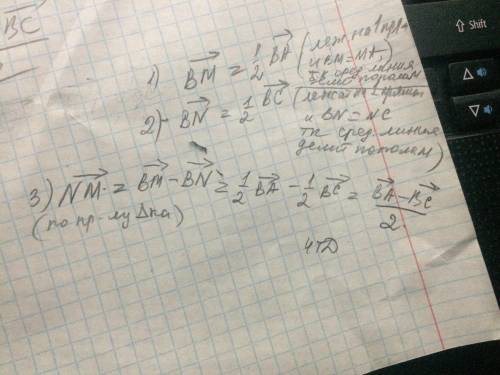 BC
1) BM = 1/2 BA (леж. на 1 прям
и BM = MA,
тк сред. линия
делит пополам
2) BN = 1/2 BC (лежат на 1 прямой
и BN = NC
тк сред. линия
делит пополам)
3) NM = BM − BN = 1/2 BA − 1/2 BC = BA − BC / 2
(по пр-лу Δка)
чтд
Shift